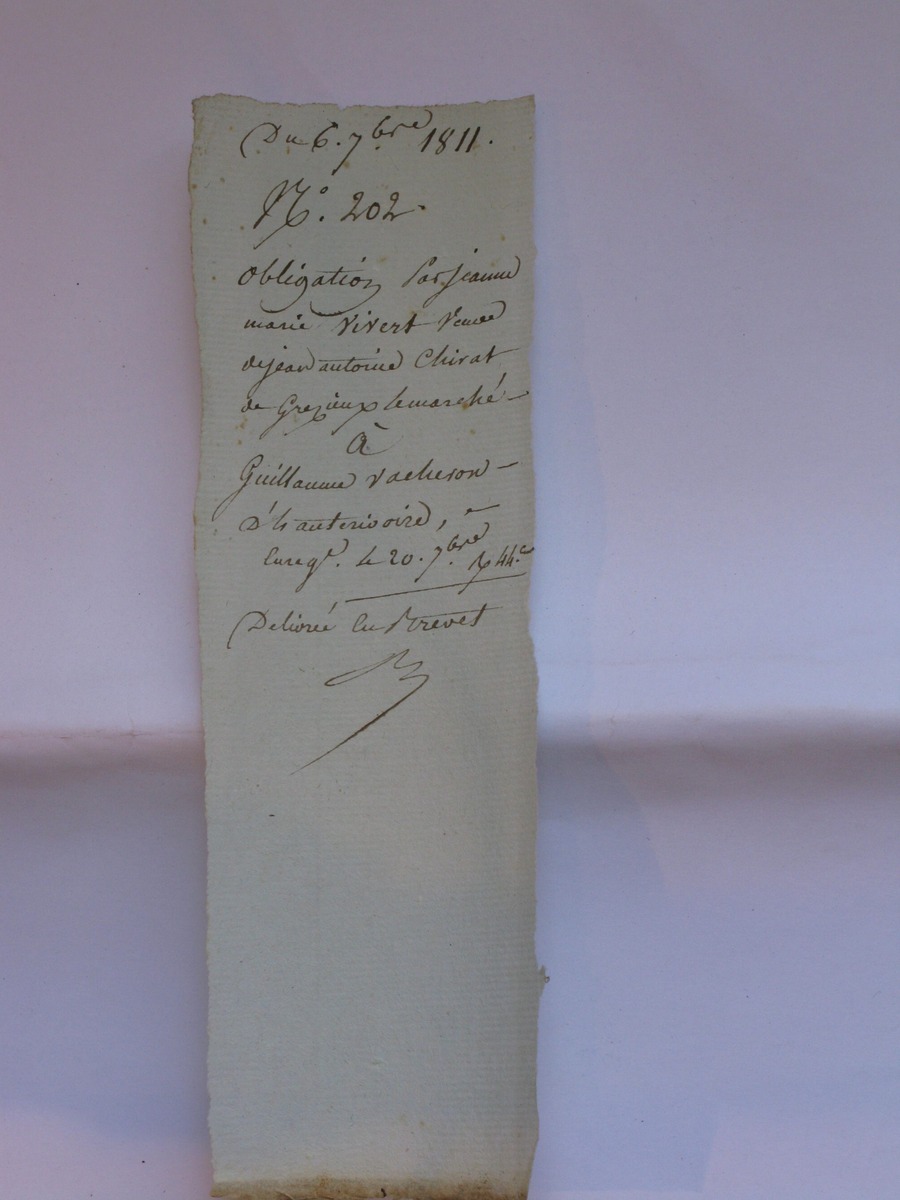 Du 6. 7bre 1811.
N°. 202.
obligation par jeanne
marie vivert veuve
de jean antoine Chirat
de Grezieux le marché
à
Guillaume vacheron
D'hauterivoire,
Enregt. le 20. 7bre 44.c
Delivrée En Brevet